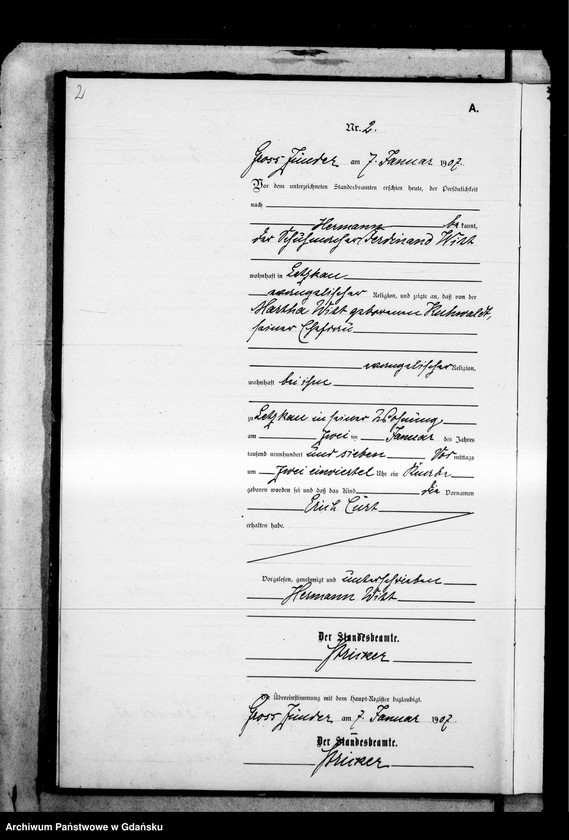 2
A.
Nr. 2.
Gross Zünder am 7. Januar 1907.
Vor dem unterzeichneten Standesbeamten erschien heute, der Persönlichkeit
nach
Hermann bekannt,
der Schuhmacher Ferdinand Witt
wohnhaft in Letzkau
evangelischer Religion, und zeigte an, daß von der
Martha Witt geborenen Kuhwaldt,
seiner Ehefrau
evangelischer Religion,
wohnhaft bei ihm
zu Letzkau in seiner Wohnung
am zwei ten Januar des Jahres
tausend neunhundert und sieben Vor mittags
um zwei einviertel Uhr ein Knabe
geboren worden sei und daß das Kind die Vornamen
Erich Curt
erhalten habe.
Vorgelesen, genehmigt und unterschrieben
Hermann Witt
Der Standesbeamte.
Stricker
Die Übereinstimmung mit dem Haupt-Register beglaubigt.
Gross Zünder am 7. Januar 1907
Der Standesbeamte.
Stricker
Archiwum Państwowe w Gdańsku